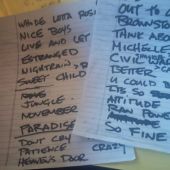 WHOLE LOTTA ROSIE
NICE BOYS
LIVE AND LET
ESTRANGED
NIGHTRAIN
SWEET CHILD
JUNGLE
NOVEMBER
PARADISE
DON'T CRY
PATIENCE CRAZY
HEAVENS DOOR
OUT TO
BROWNSTONE
THINK ABOUT
MICHELLE
CIVIL
BETTER
U COULD B
ITS SO
ATTITUDE
RAW POWER
SO FINE